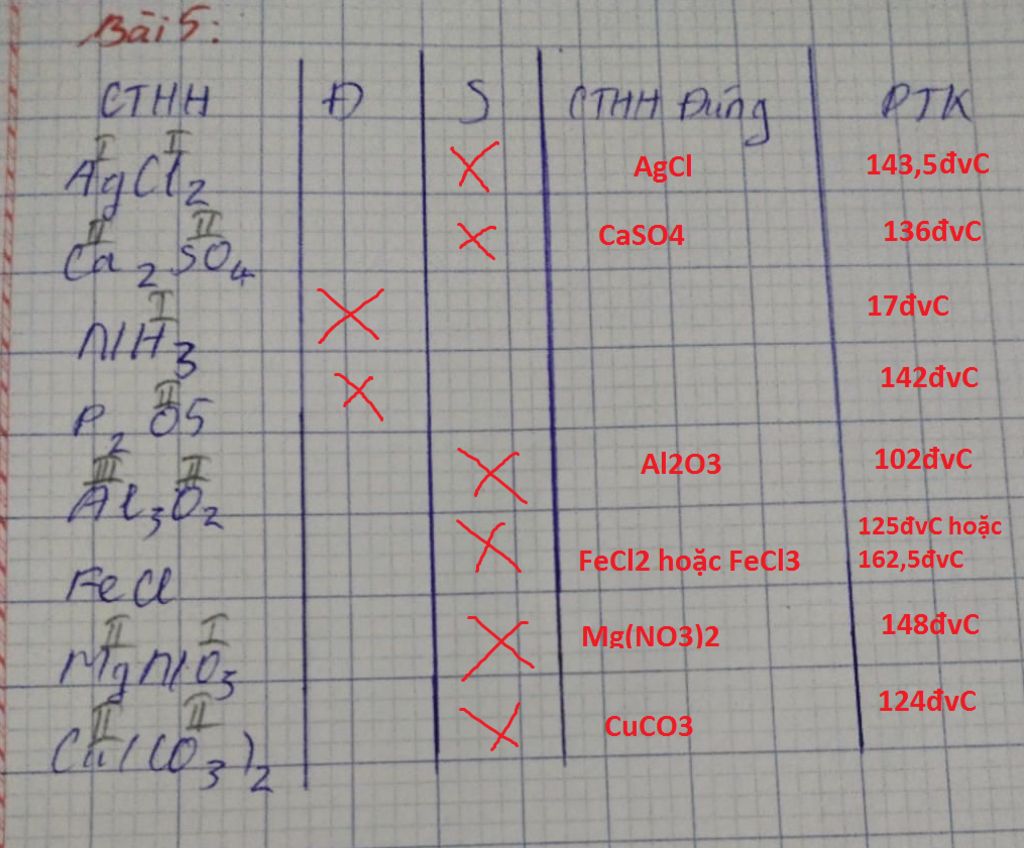 Bài 5:
CTHH Đ S CTHH Đúng PTK
I II
AgCl2 X AgCl 143,5đvC
II II
Ca2SO4 X CaSO4 136đvC
I
NH3 X 17đvC
II
P2O5 X 142đvC
III II
Al3O2 X Al2O3 102đvC
FeCl X FeCl2 hoặc FeCl3 125đvC hoặc
162,5đvC
II I
MgNO3 X Mg(NO3)2 148đvC
II II
Cu(CO3)2 X CuCO3 124đvC